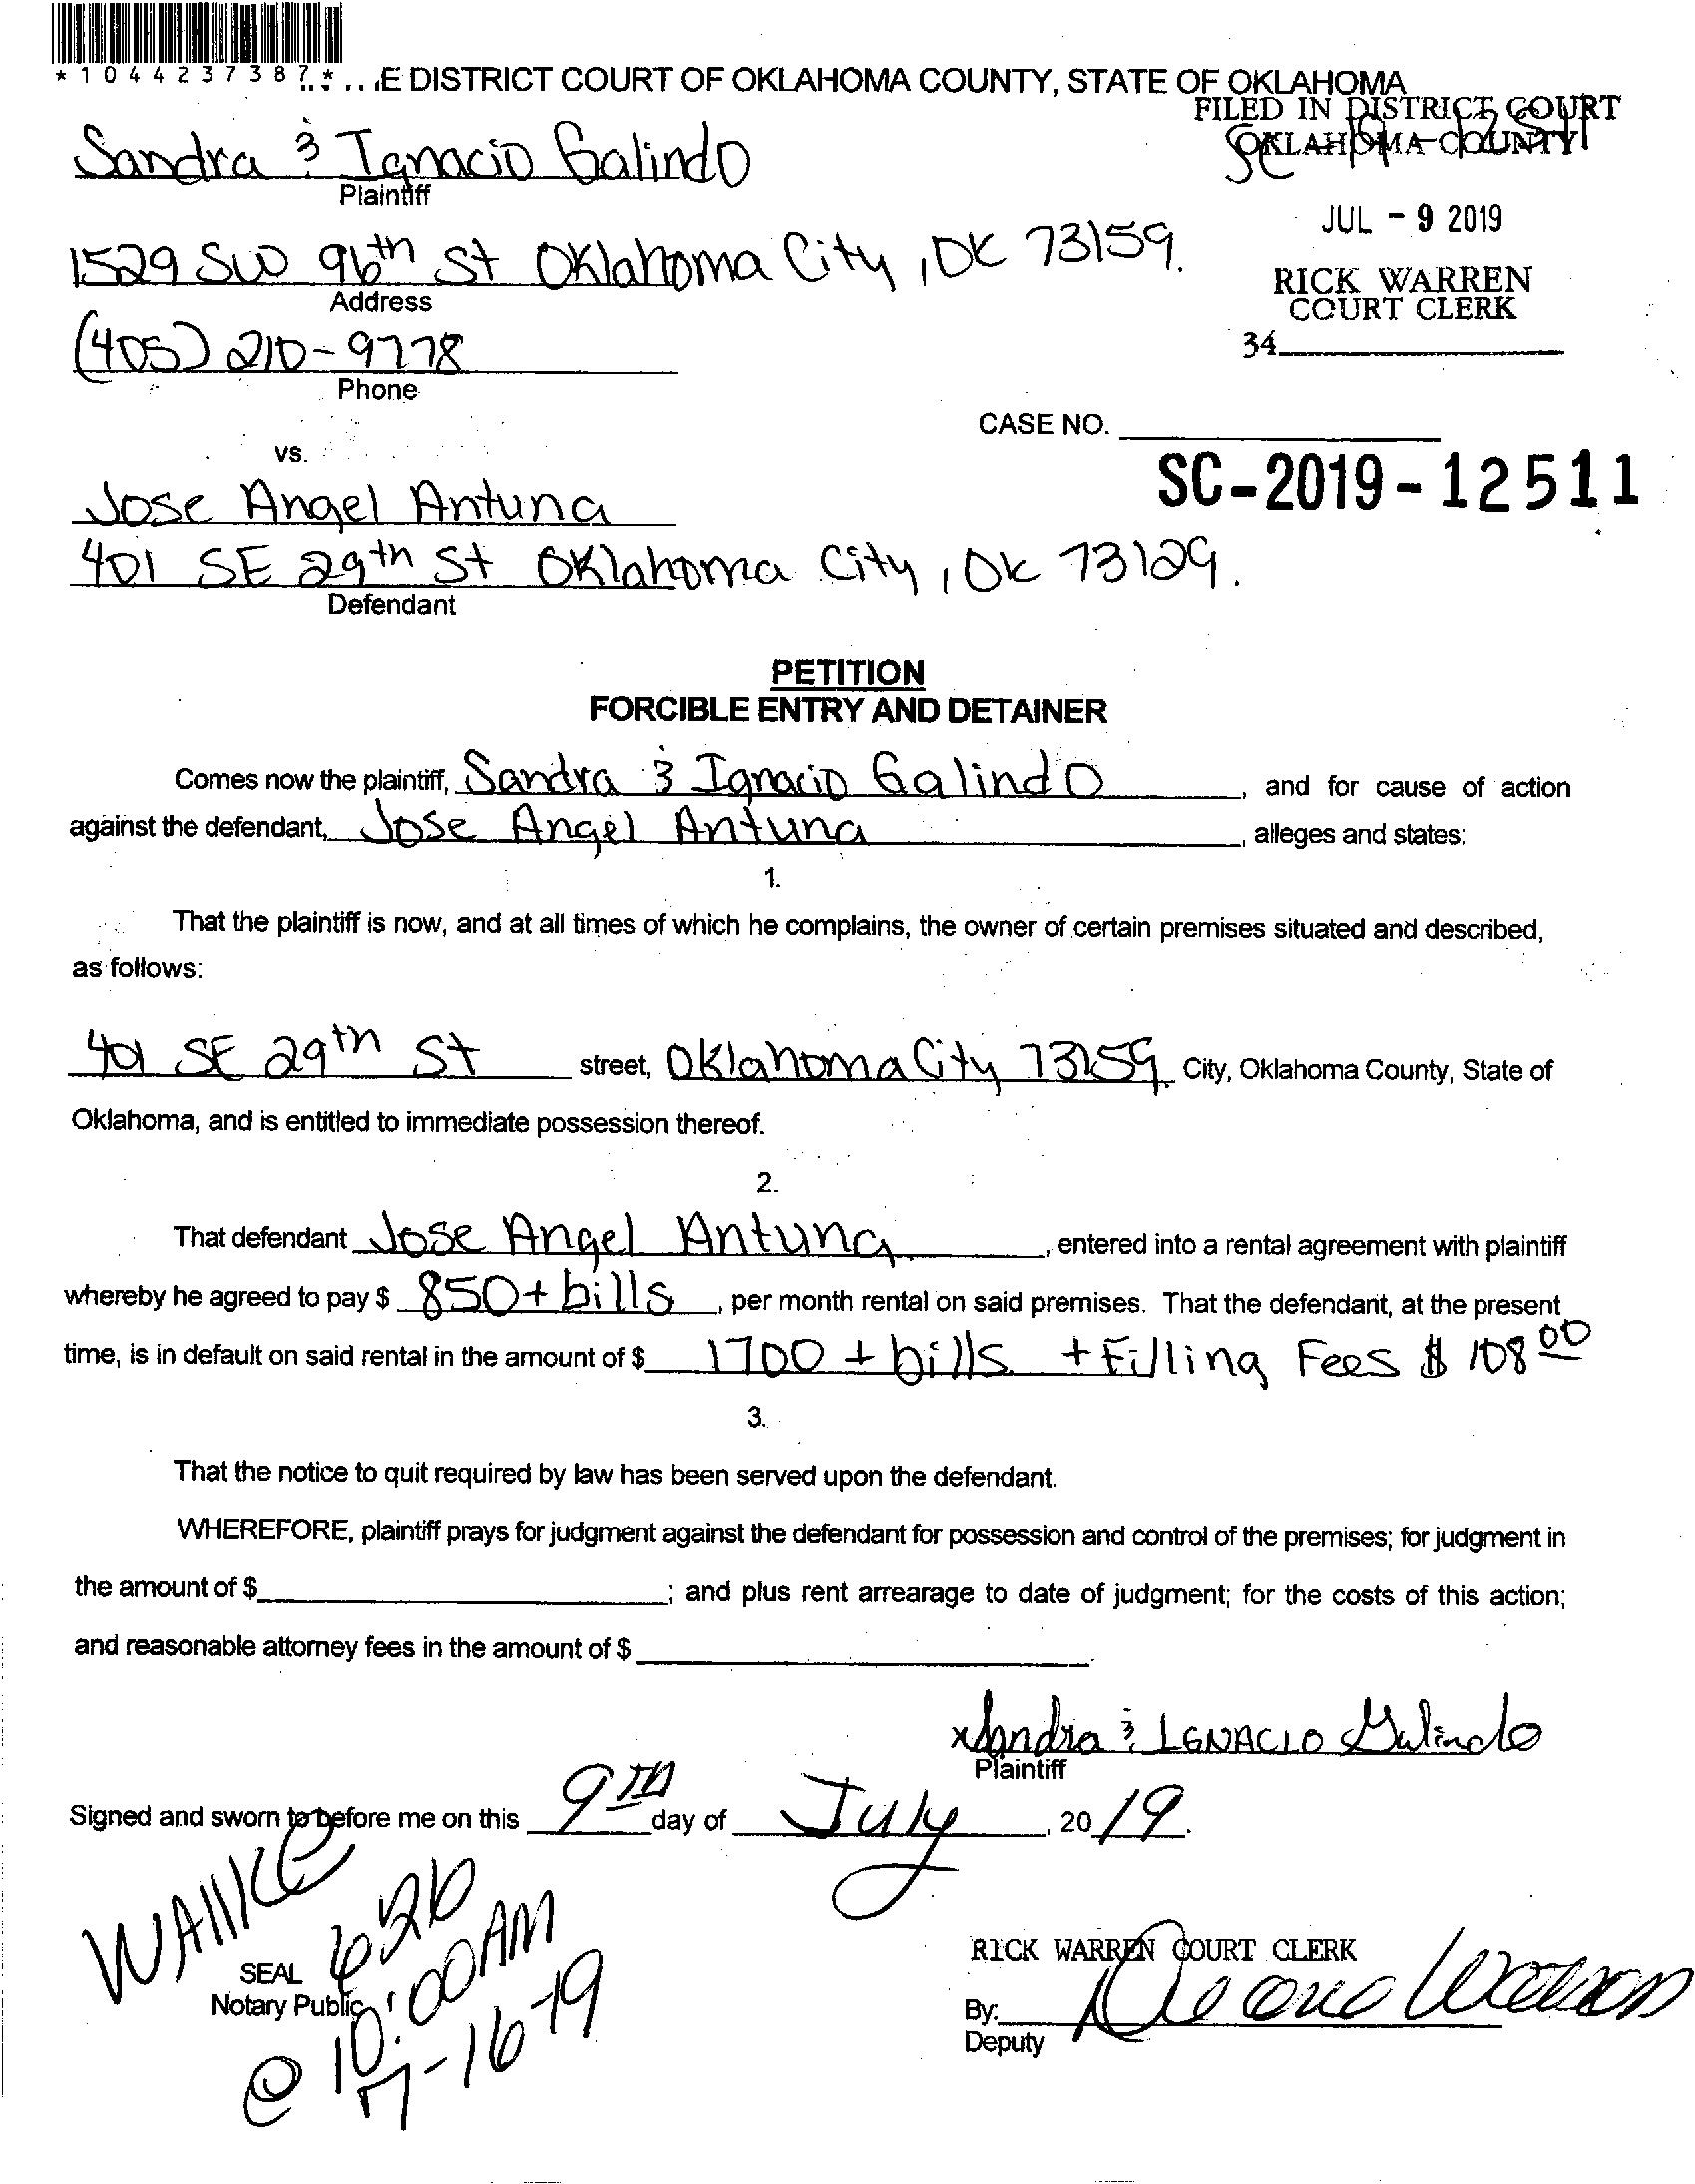 *1044237387*
E DISTRICT COURT OF OKLAHOMA COUNTY, STATE OF OKLAHOMA
FILED IN DISTRICT COURT
OKLAHOMA COUNTY
SC 19-12511
Sandra & Ignacio Galindo
Plaintiff
JUL - 9 2019
1529 SW 96th St Oklahoma City, OK 73159.
Address
RICK WARREN
COURT CLERK
34
(405) 210-9778
Phone
CASE NO.
vs.
SC-2019-12511
Jose Angel Antuna
401 SE 29th St Oklahoma City, Ok 73129.
Defendant
PETITION
FORCIBLE ENTRY AND DETAINER
Comes now the plaintiff, Sandra & Ignacio Galindo, and for cause of action
against the defendant, Jose Angel Antuna, alleges and states:
1.
That the plaintiff is now, and at all times of which he complains, the owner of certain premises situated and described,
as follows:
401 SE 29th St street, Oklahoma City 73159. City, Oklahoma County, State of
Oklahoma, and is entitled to immediate possession thereof.
2.
That defendant Jose Angel Antuna, entered into a rental agreement with plaintiff
whereby he agreed to pay $ 850 + bills, per month rental on said premises. That the defendant, at the present
time, is in default on said rental in the amount of $ 1700 + bills + Filling Fees $ 108 00
3.
That the notice to quit required by law has been served upon the defendant.
WHEREFORE, plaintiff prays for judgment against the defendant for possession and control of the premises; for judgment in
the amount of $ ; and plus rent arrearage to date of judgment; for the costs of this action;
and reasonable attorney fees in the amount of $
x Sandra & IGNACIO Galindo
Plaintiff
Signed and sworn to before me on this 9TH day of July, 20 19.
WAIIKE
626
SEAL
Notary Public
@ 10:00 AM
7-16-19
RICK WARREN COURT CLERK
By:
Deputy